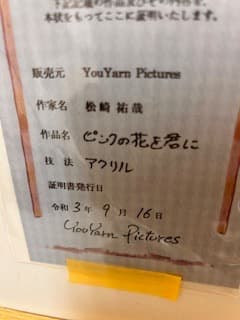 下記記載の作品及びその内容を、
本状をもってここに証明いたします。
販売元 YouYarn Pictures
作家名 松崎祐哉
作品名 ピンクの花を君に
技法 アクリル
証明書発行日
令和3年9月16日
YouYarn Pictures